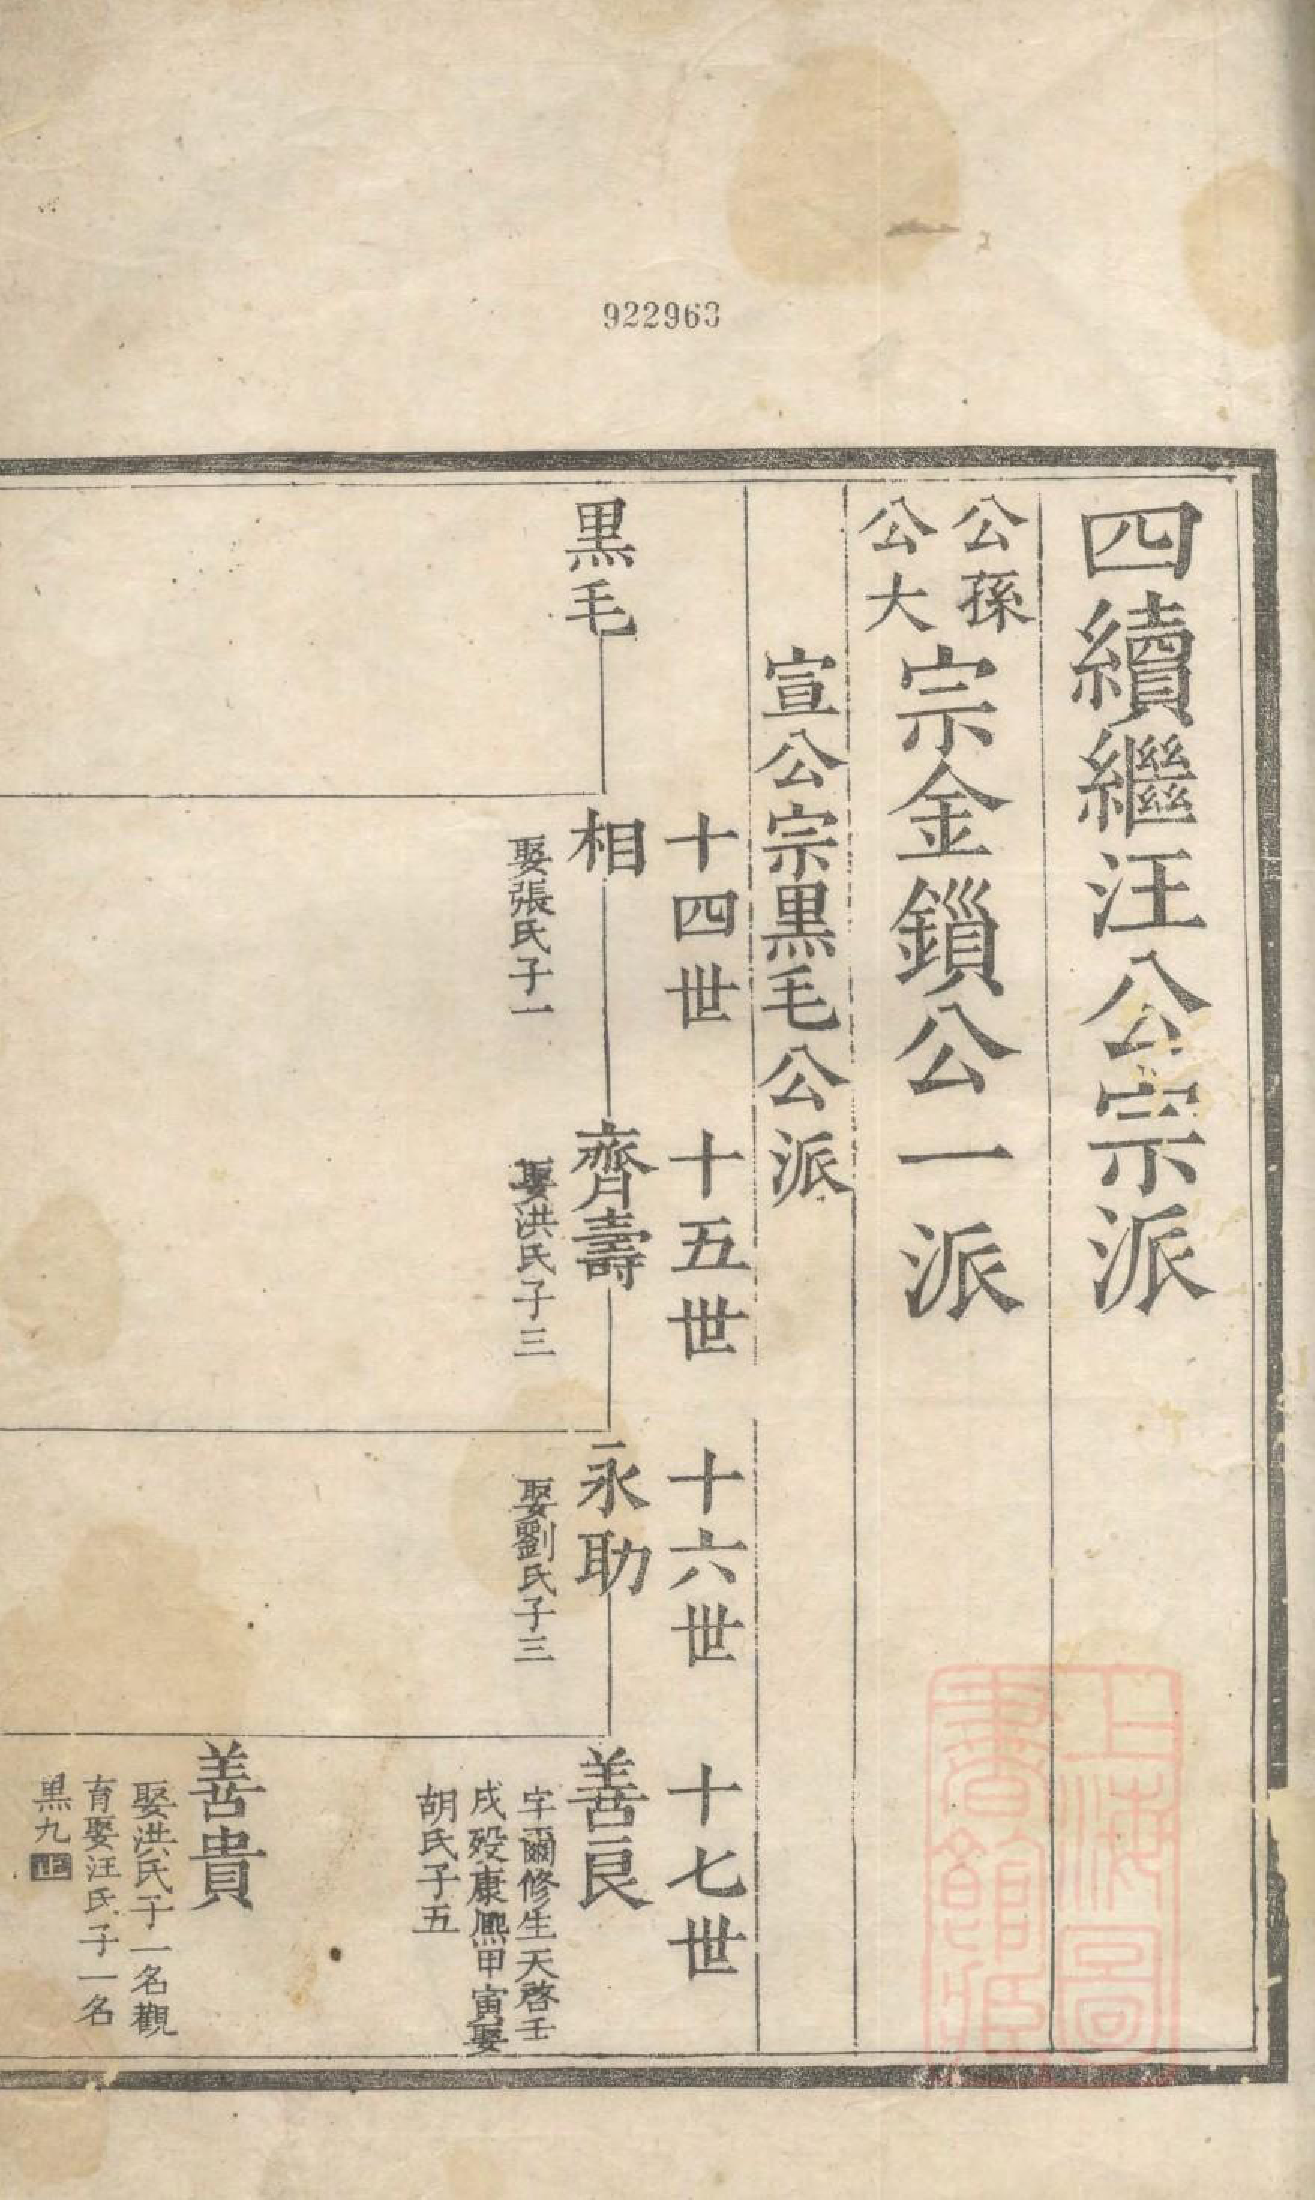 922963
四續繼汪公宗派
公孫
公大
宗金鎻公一派
宣公宗黒毛公派
十四世
十五世
十六世
十七世
黒毛
相
娶張氏子一
齊壽
娶洪氏子三
永助
娶劉氏子三
善良
字爾修生天啓壬
戌殁康熈甲寅娶
胡氏子五
善貴
娶洪氏子一名觀
育娶汪氏子一名
黒九止
上海圖
書館藏